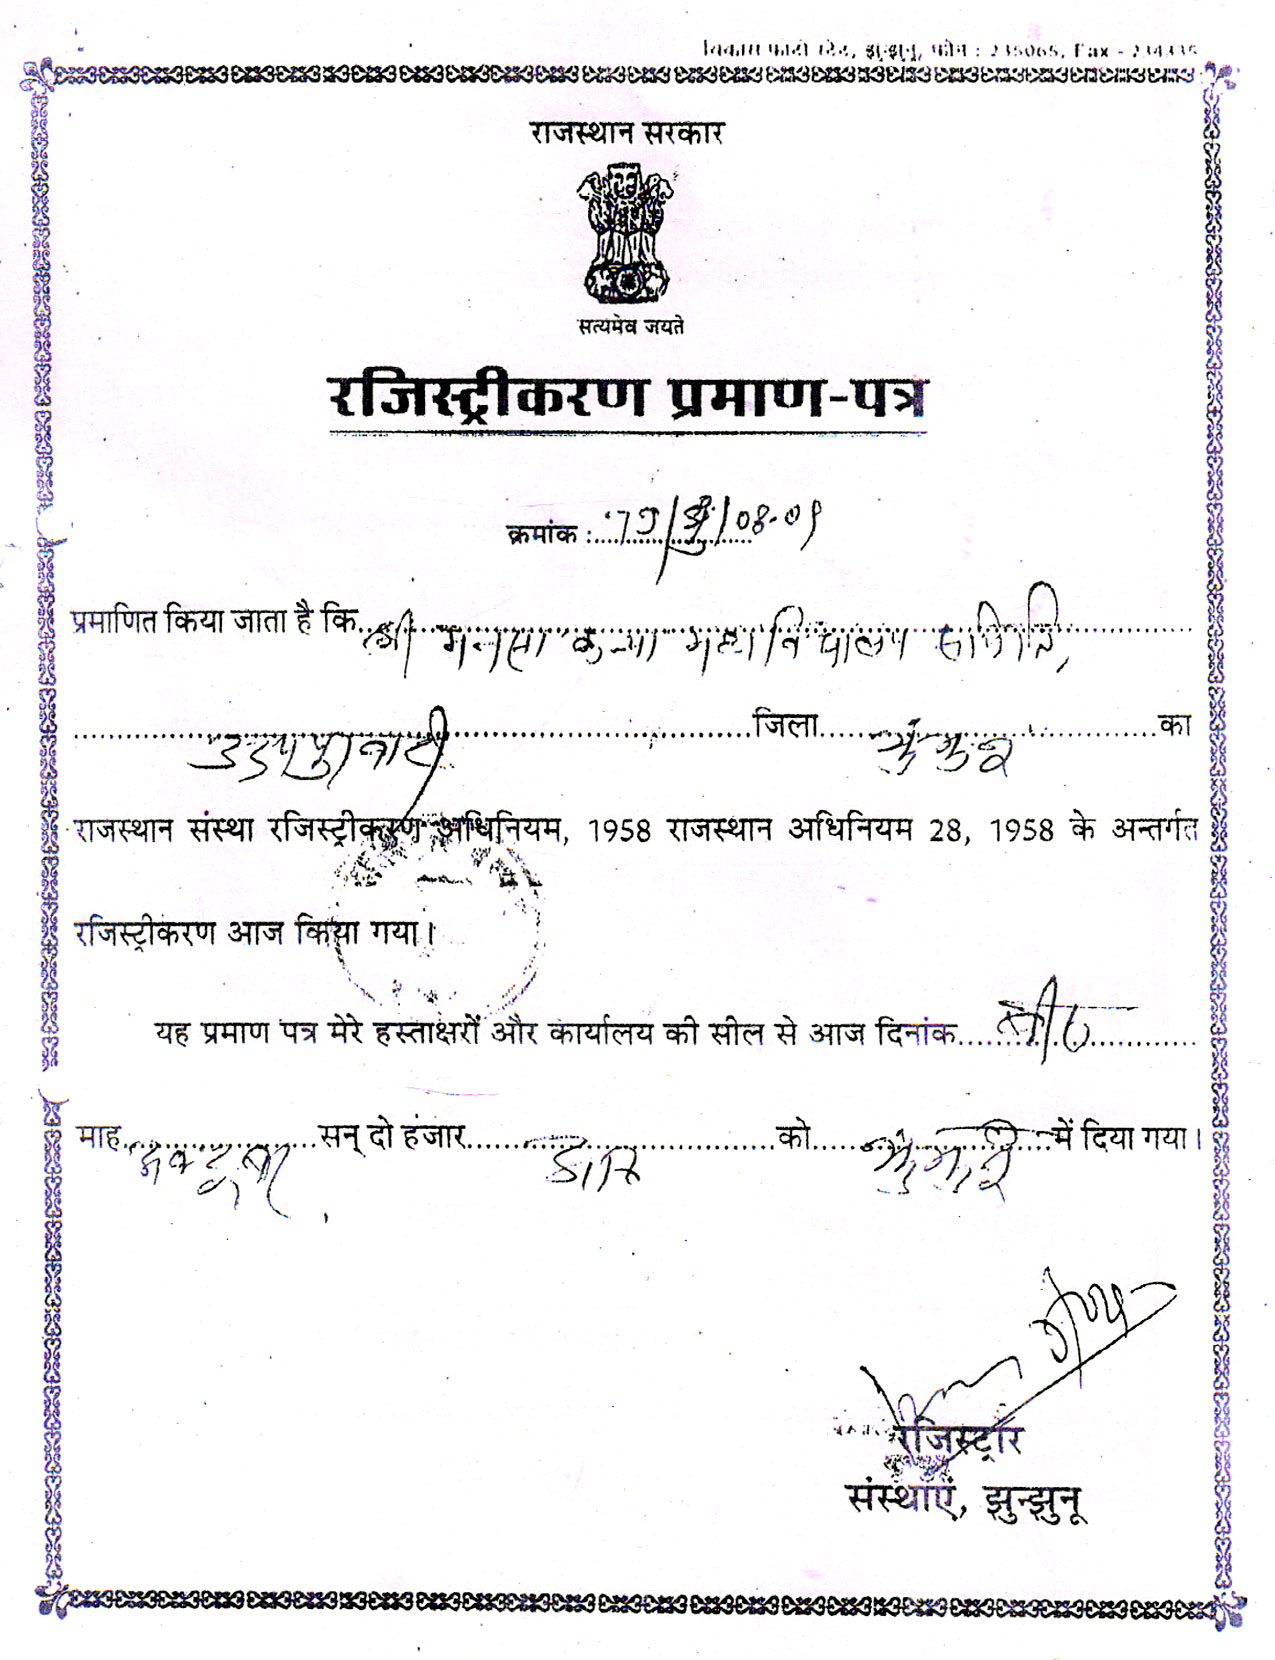 झुन्झुनू, फोन : 235065, Fax - 234335
राजस्थान सरकार
सत्यमेव जयते
रजिस्ट्रीकरण प्रमाण-पत्र
क्रमांक : 79/झु/08-09
प्रमाणित किया जाता है कि श्री मनसा कन्या महाविद्यालय समिति,
उदयपुरवाटी जिला झुंझुनू का
राजस्थान संस्था रजिस्ट्रीकरण अधिनियम, 1958 राजस्थान अधिनियम 28, 1958 के अन्तर्गत
रजिस्ट्रीकरण आज किया गया।
यह प्रमाण पत्र मेरे हस्ताक्षरों और कार्यालय की सील से आज दिनांक
माह अक्टूबर सन् दो हजार आठ को झुंझुनू में दिया गया।
रजिस्ट्रार
संस्थाएं, झुन्झुनू